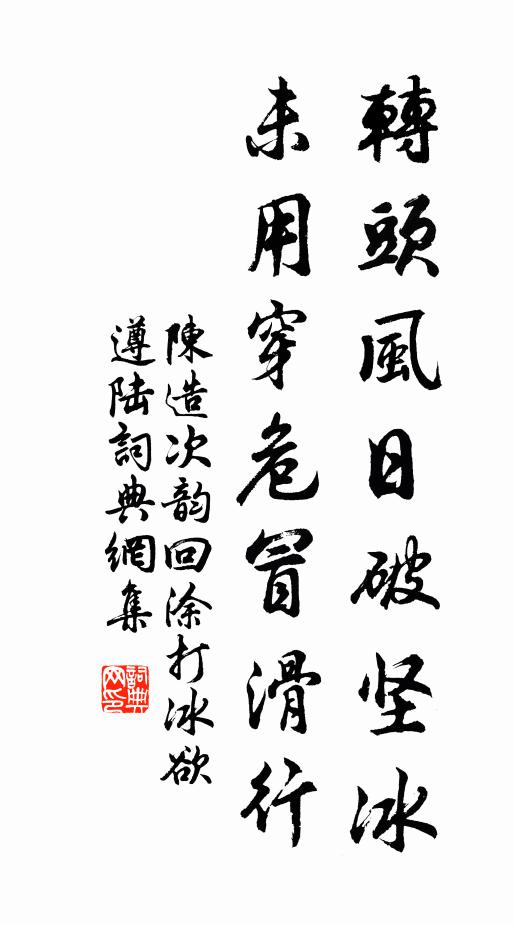 轉頭風日破坚冰
未用穿危冒滑行
陳造次韵回涂打冰欲
遵陆詞典網集
詞典网印